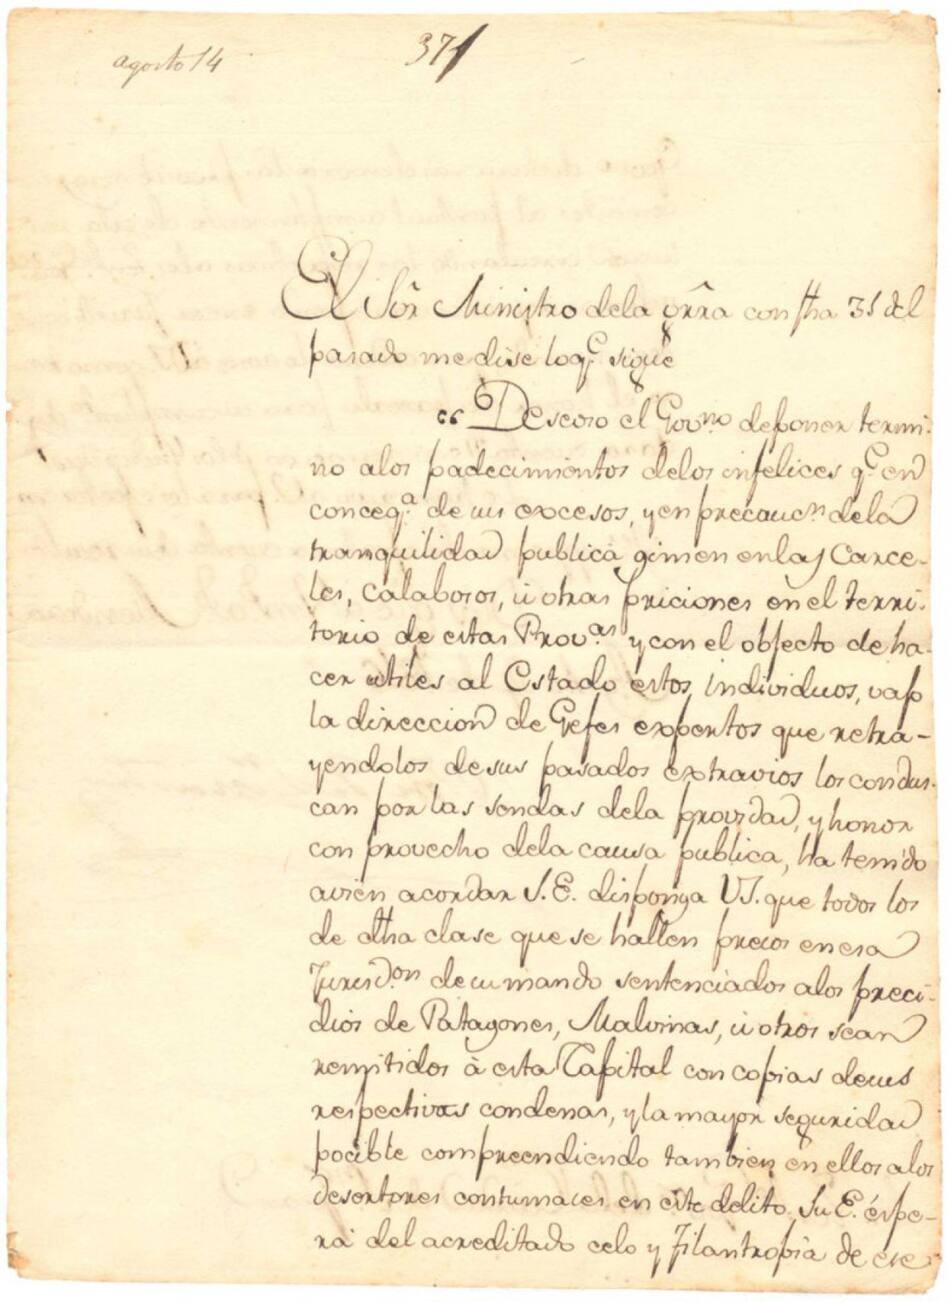 agosto 14
37
El Sôr Ministro dela grra con fha 31 del
pasado me dise loq.e sigue
"Deseoso el Gov.no deponer termi-
no alos padecimientos delos infelices q.e en
conceq.a de sus excesos, y en precauc.n dela
tranquilidad publica gimen enlas Carce-
les, Calabosos, ú otras priciones en el terri-
torio de estas Prov.as y con el objecto de ha-
cer utiles al Estado estos individuos, vajo
la direccion de Gefes expertos que retra-
yendolos desus pasados extravios los condus-
can por las sendas dela providad, y honor
con provecho dela causa publica, ha tenido
avien acordar S.E. disponga VS. que todos los
de dha clase que se hallen precos enesa
Jurisd.on desumando sentenciados alos preci-
dios de Patagones, Malvinas, ú otros sean
remitidos à esta Capital con copias desus
respectivas condenas, y la mayor seguridad
pocible compreendiendo tambien en ellos alos
desertores contumaces en este delito. Su E. éspe-
ra del acreditado celo y Filantropia de ese